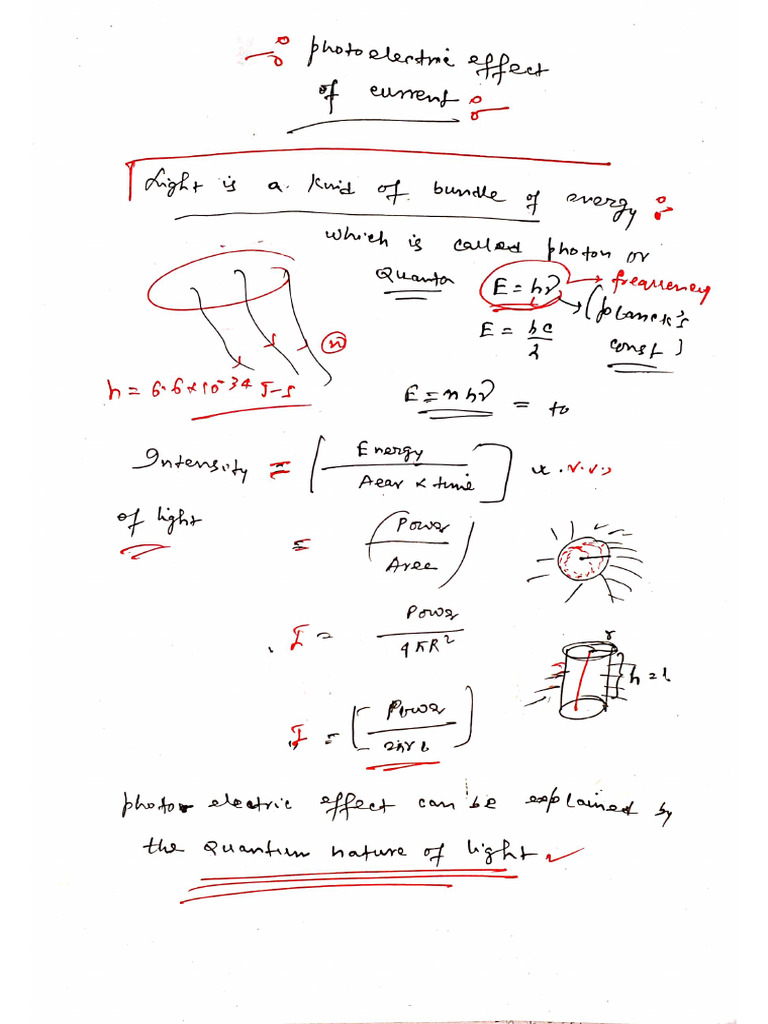 photoelectric effect
of current
Light is a kind of bundle of energy
which is called photon or
Quanta E = hν → frequency
→ (planck's
const)
E = hc/λ
(n)
h = 6.6×10-34 J-s
E = nhν = to
Intensity = [Energy / Aear × time] v.v.i
of light
= (Power / Area)
I = Power / 4πR²
r
h = l
I = [Power / 2πrl]
photo electric effect can be explained by
the Quantum nature of light